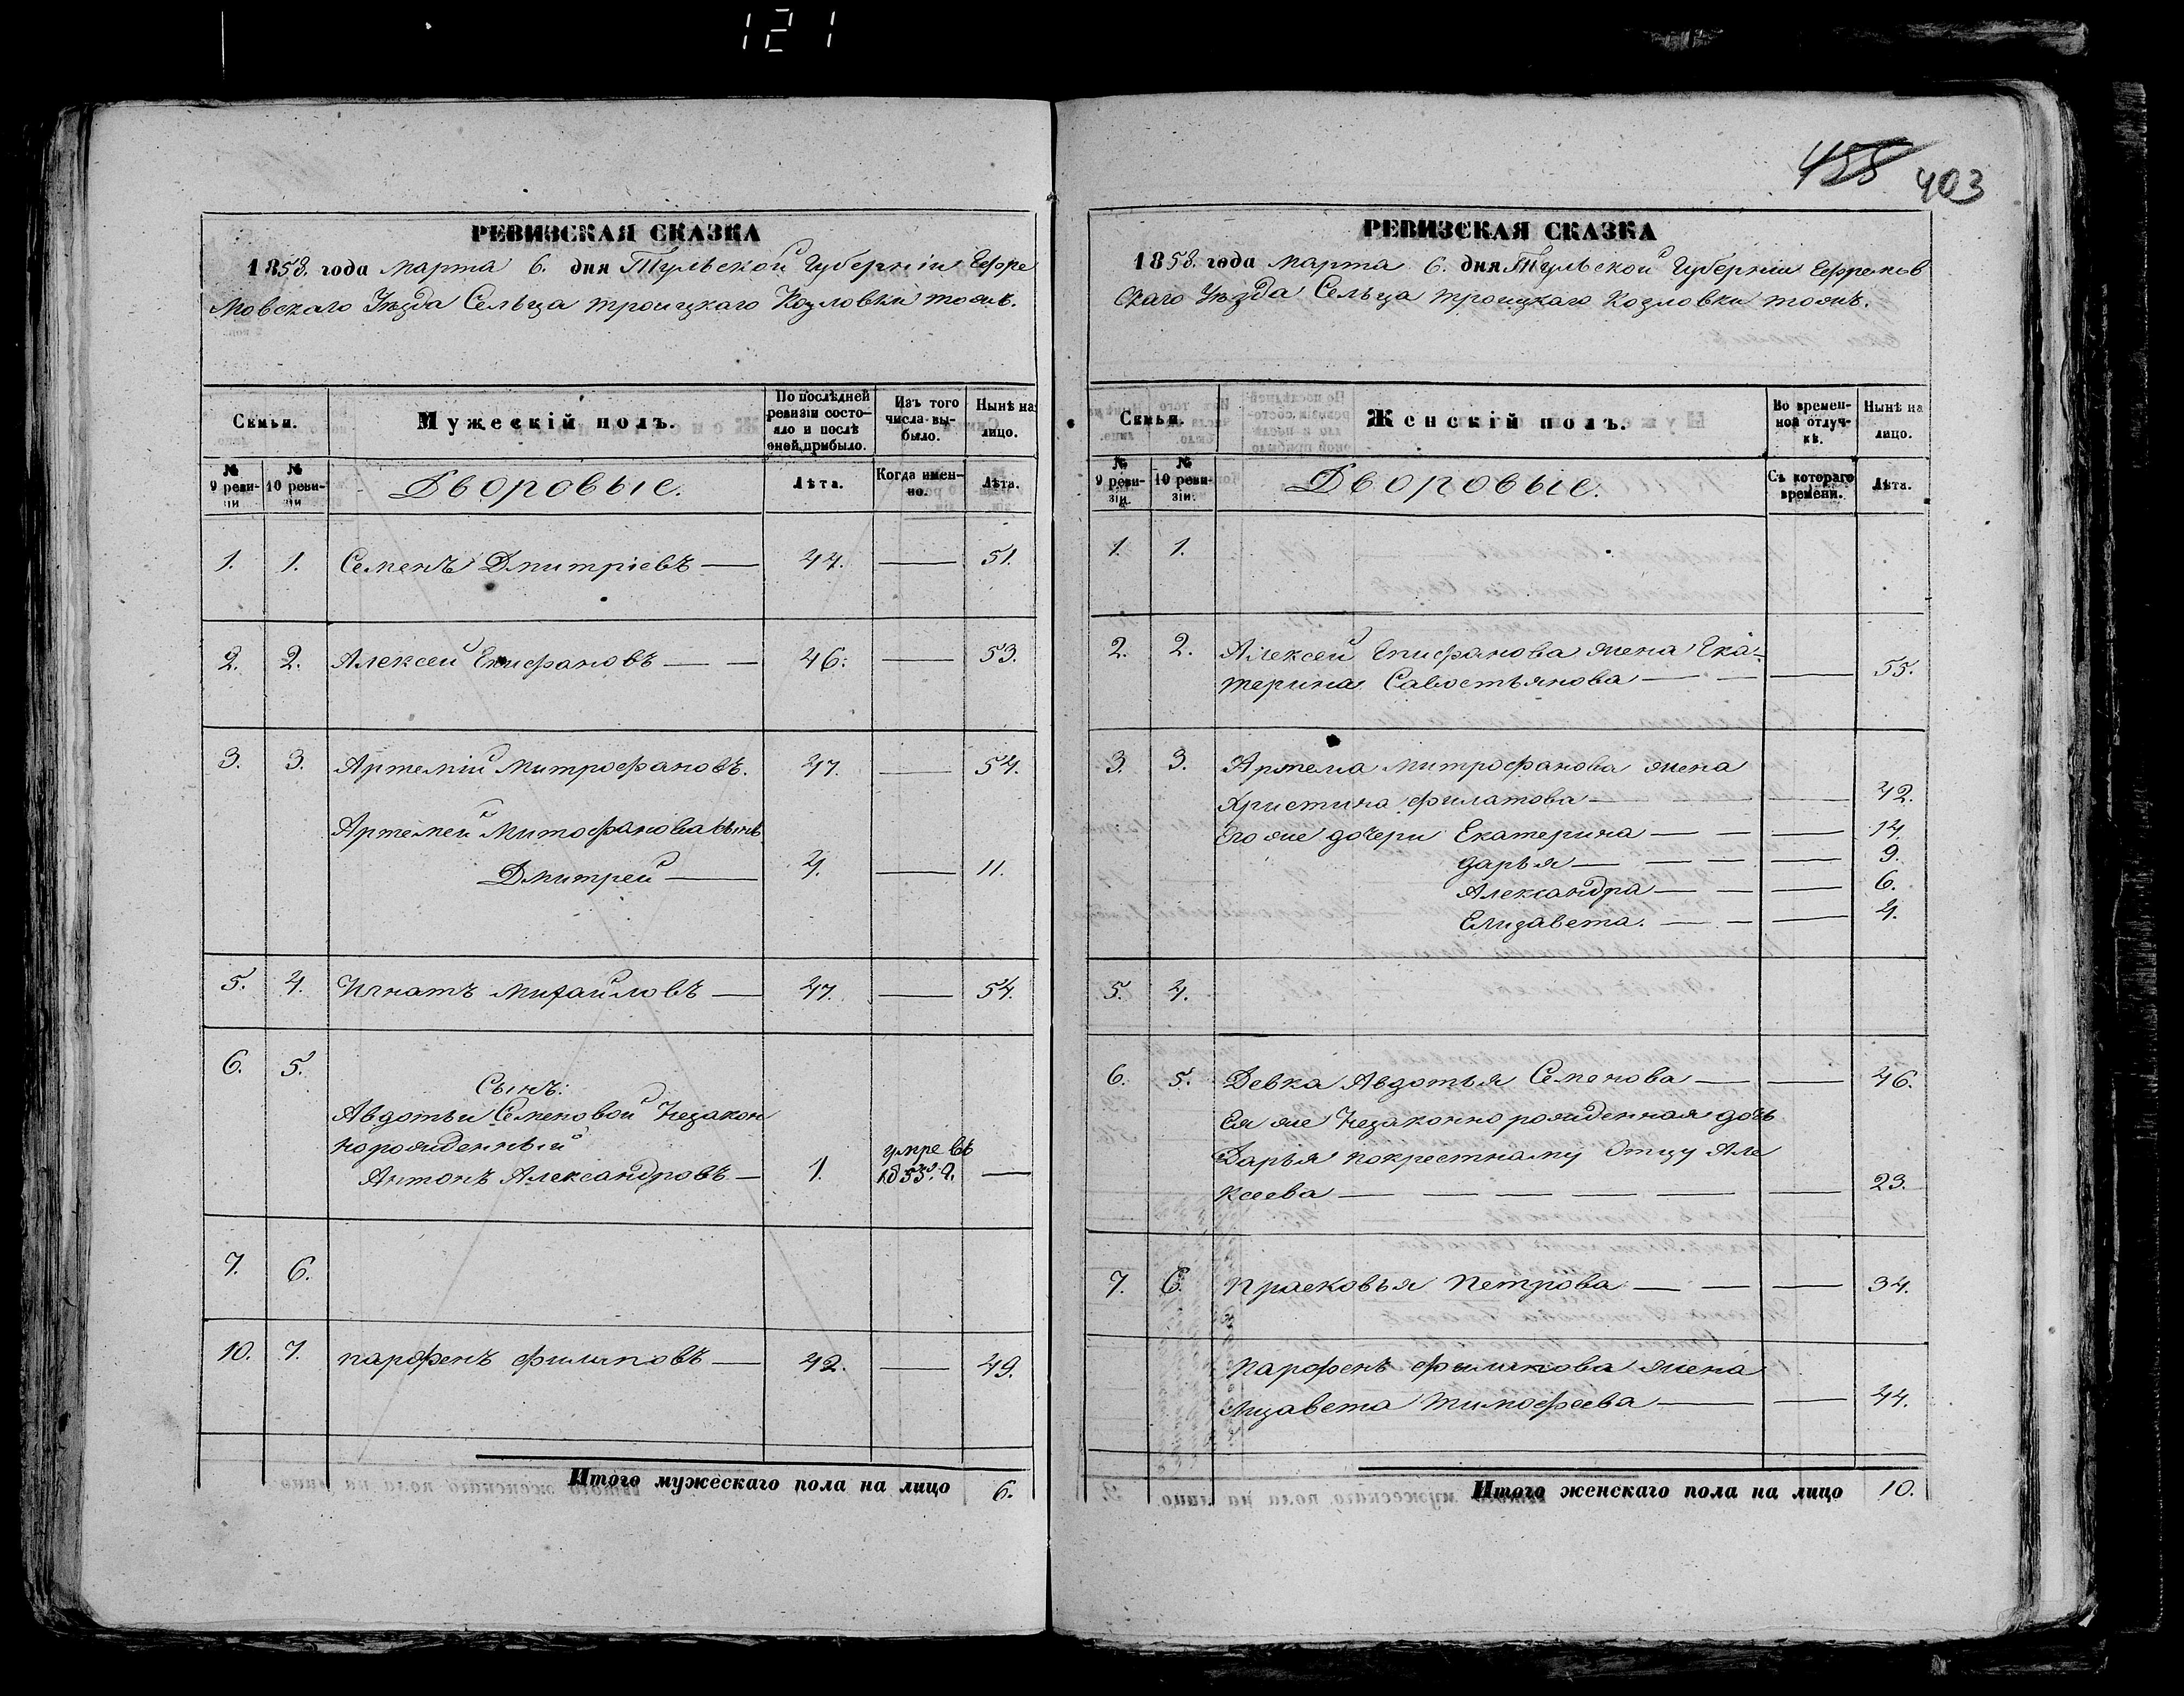 121
РЕВИЗСКАЯ СКАЗКА
1858. года Марта 6. дня Тульской Губерніи Ефре
мовскаго Уѣзда Сельца Троицкаго Козловки тожъ.
Семьи.
Мужескій полъ.
По послѣдней ревизіи состояло и послѣ оней прибыло.
Изъ того числа выбыло.
Нынѣ на лицо.
№ 9 ревизіи
№ 10 ревизіи
Дворовые.
Лѣта.
Когда именно.
Лѣта.
1. 1. Семенъ Дмитріевъ — 44. — 51.
2. 2. Алексей Епифановъ — — 46. — 53.
3. 3. Артемій Митрофановъ. 47. — 54.
Артемей Митофанова сынъ
Дмитрей — 4. — 11.
5. 4. Игнатъ Михайловъ — 47. — 54.
6. 5. Сынъ:
Авдотьи Семеновой Незакон
норожденный
умре въ
Антонъ Александровъ — 1. 1853. г. —
7. 6.
10. 7. Парфенъ Филиповъ — 42. — 49.
Итого мужескаго пола на лицо 6.
458 403
РЕВИЗСКАЯ СКАЗКА
1858. года Марта 6. дня Тульской Губерніи Ефремов
скаго Уѣзда Сельца Троицкаго Козловки тожъ.
Семьи.
Женскій полъ.
Во временной отлучкѣ.
Нынѣ на лицо.
№ 9 ревизіи.
№ 10 ревизіи.
Дворовые.
Съ котораго времени.
Лѣта.
1. 1.
2. 2. Алексей Епифанова жена Ека-
терина Савостьянова — — — 55.
3. 3. Артема Митрофанова жена
Христина Филатова — — — 42.
Его же дочери Екатерина — — — 14.
Дарья — — — — 9.
Александра — — — 6.
Елизавета. — — — 4.
5. 4.
6. 5. Девка Авдотья Семенова — — 46.
Ея же Незаконно рожденная дочь
Дарья покрестному Отцу Але
ксеева — — — — — — — 23.
7. 6. Прасковья Петрова — — — 34.
Парфенъ Филипова жена
Лизавета Тимофеева — — 44.
Итого женскаго пола на лицо 10.